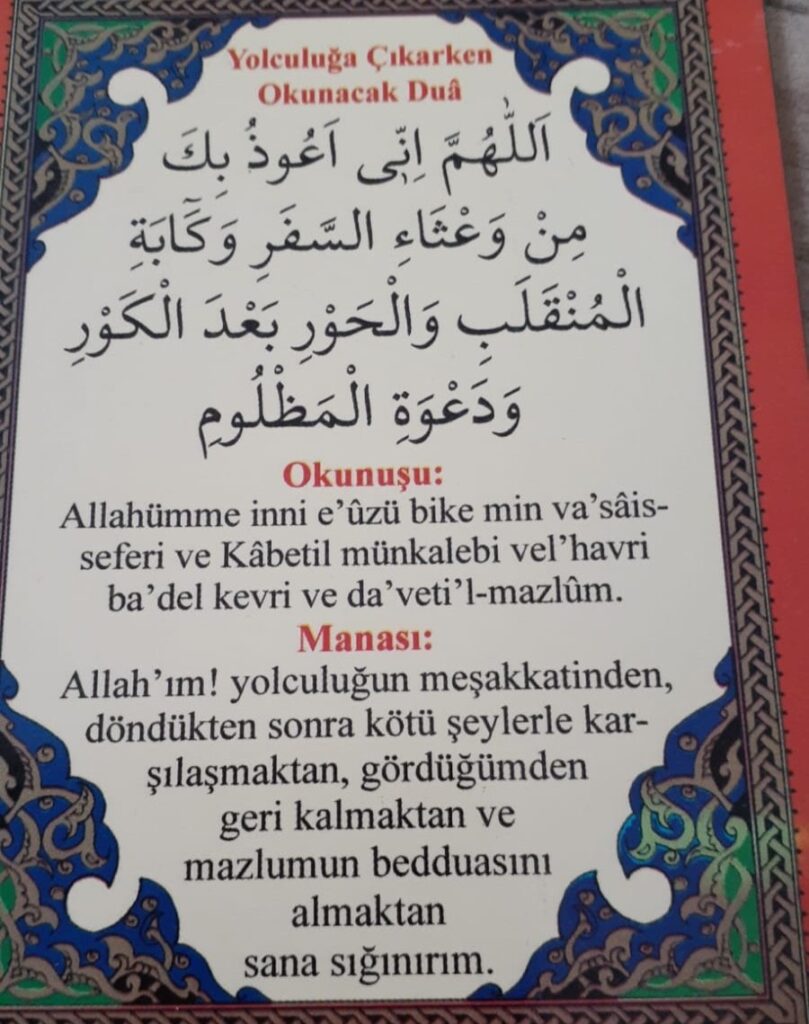 Yolculuğa Çıkarken
Okunacak Duâ
اَللّٰهُمَّ اِنّٖى اَعُوذُ بِكَ
مِنْ وَعْثَاءِ السَّفَرِ وَكَآبَةِ
الْمُنْقَلَبِ وَالْحَوْرِ بَعْدَ الْكَوْرِ
وَدَعْوَةِ الْمَظْلُومِ
Okunuşu:
Allahümme inni e’ûzü bike min va’sâis-
seferi ve Kâbetil münkalebi vel’havri
ba’del kevri ve da’veti’l-mazlûm.
Manası:
Allah’ım! yolculuğun meşakkatinden,
döndükten sonra kötü şeylerle kar-
şılaşmaktan, gördüğümden
geri kalmaktan ve
mazlumun bedduasını
almaktan
sana sığınırım.